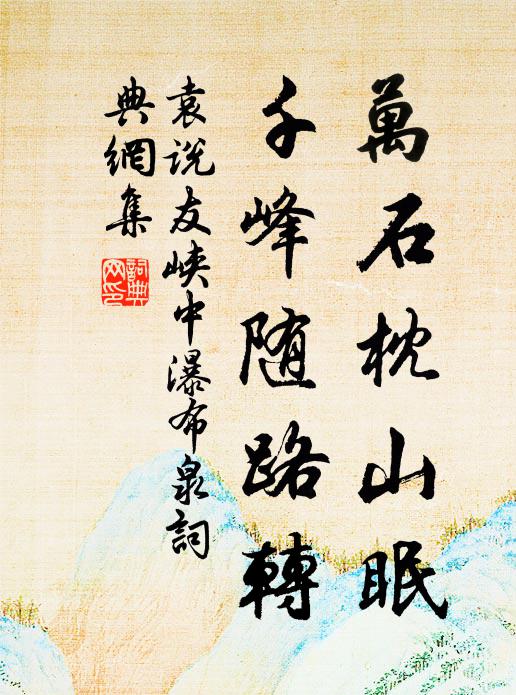 萬石枕山眠
千峰随路轉
袁説友峡中瀑布泉詞
典網集
詞典
网印